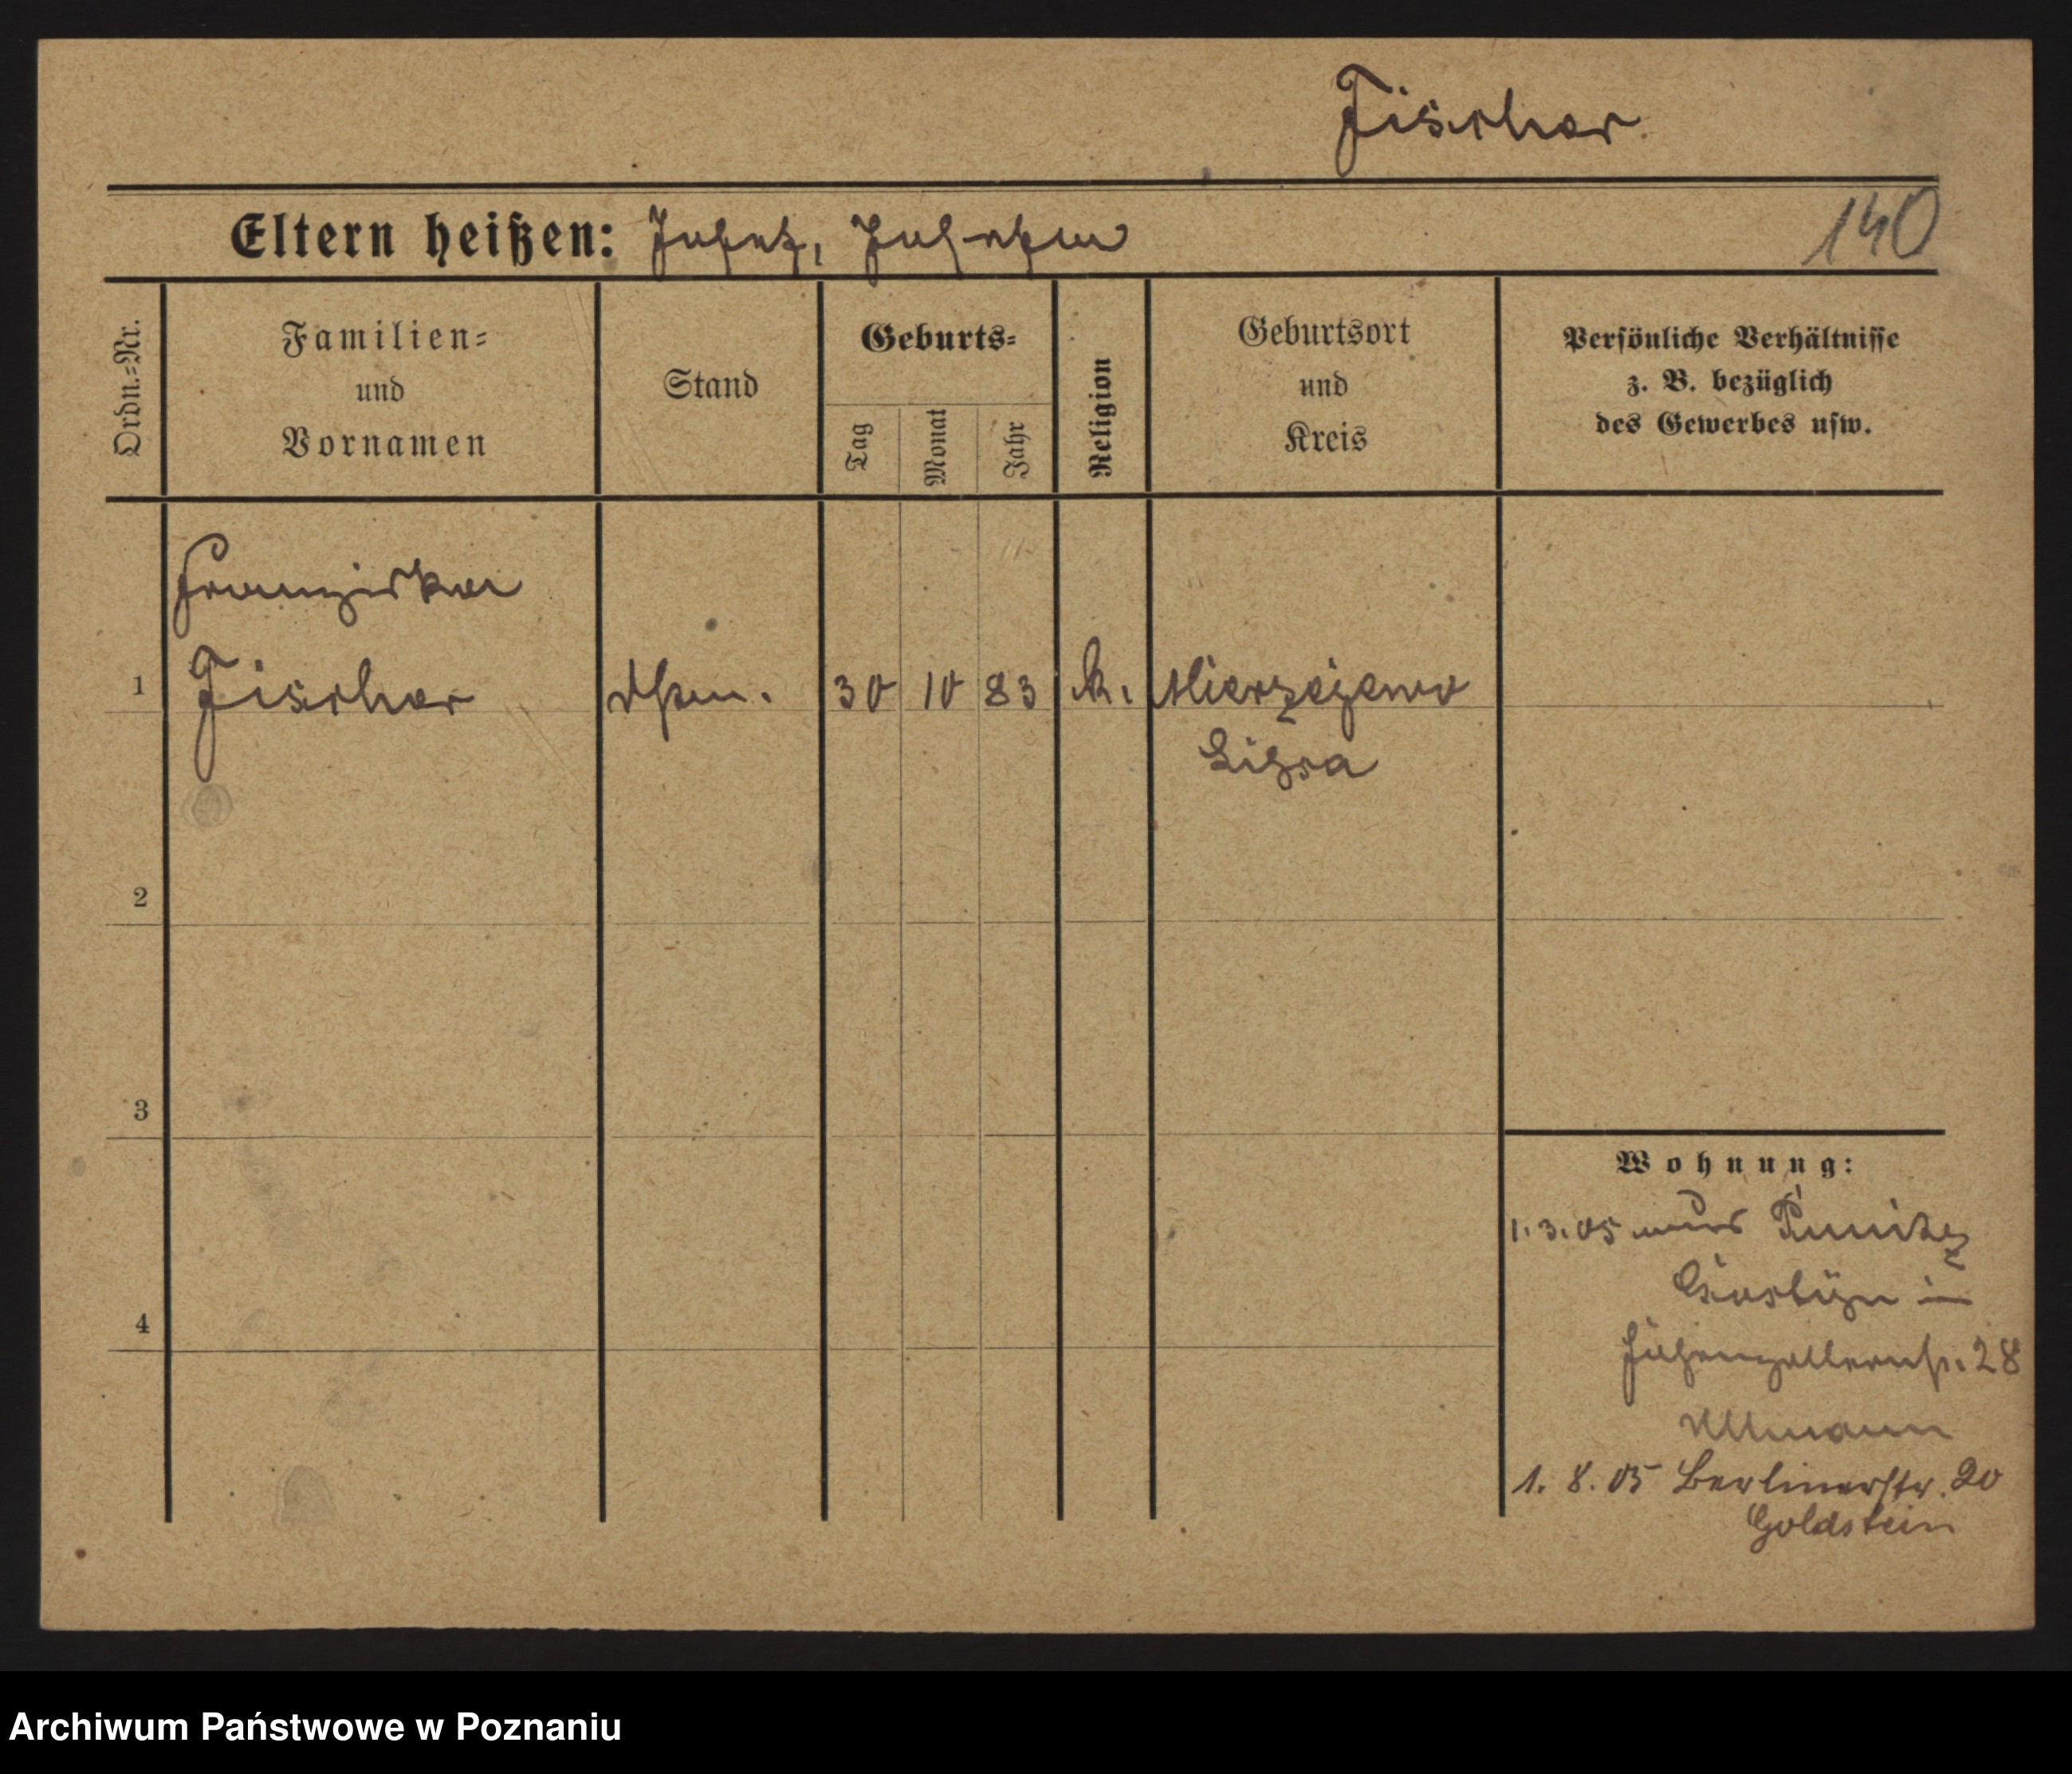 Fischer
Eltern heißen: Josef, Josefa
140
Ordn.=Nr.
Familien=
und
Vornamen
Stand
Geburts=
Tag
Monat
Jahr
Religion
Geburtsort
und
Kreis
Persönliche Verhältnisse
z. B. bezüglich
des Gewerbes usw.
Franziska
1 Fischer 30 10 83 k. Mierzejewo
Lissa
2
3
4
Wohnung:
1.3.05 aus Punitz
Gostyn in
Hohenzollernstr. 28
Ullmann
1. 8. 05 Berlinerstr. 20
Goldstein
Archiwum Państwowe w Poznaniu